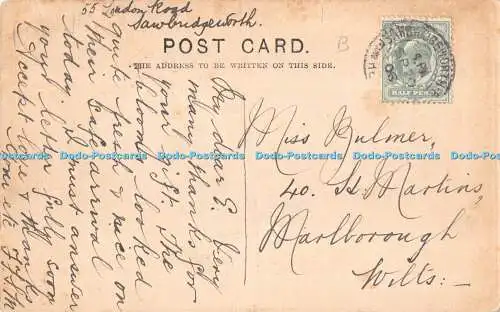 55 London Road
Sawbridgeworth.
POST CARD.
THE ADDRESS TO BE WRITTEN ON THIS SIDE.
B
HALF PENNY
My dear E. Very
many thanks for
your gift. The
blooms looked
quite fresh & nice on
their safe arrival
today. I must answer
your letter fully soon
Accept love & thanks
Miss Bulmer,
40. St. Martins,
Marlborough
Wilts:
Dodo-Postcards Dodo-Postcards Dodo-Postcards Dodo-Postcards Dodo-Postcards Dodo-Postcards